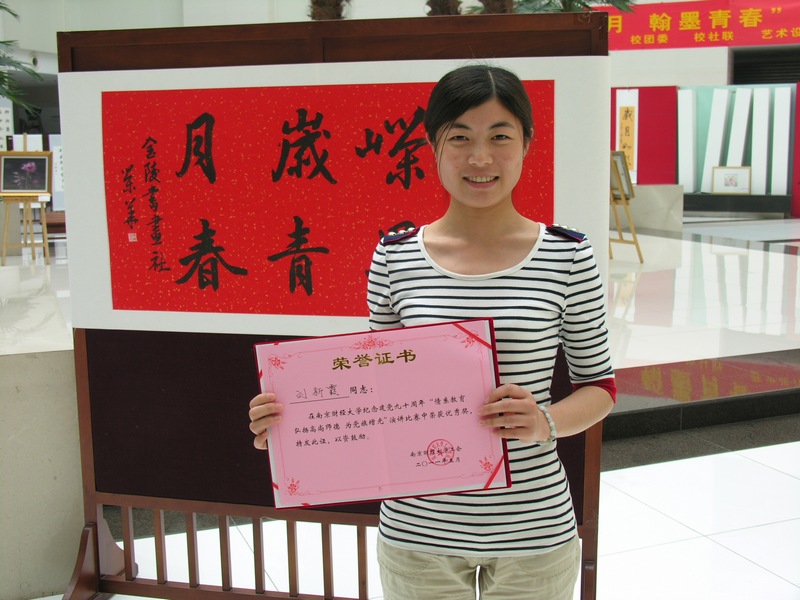 月 翰墨青春”
校团委 校社联 艺术设
嵘
歲月
青春
金陵書畫社
荣誉证书
刘新霞 同志：
在南京财经大学纪念建党九十周年“情系教育
弘扬高尚师德 为党旗增光”演讲比赛中荣获优秀奖，
特发此证，以资鼓励。
南京财经大学工会
二〇一一年五月